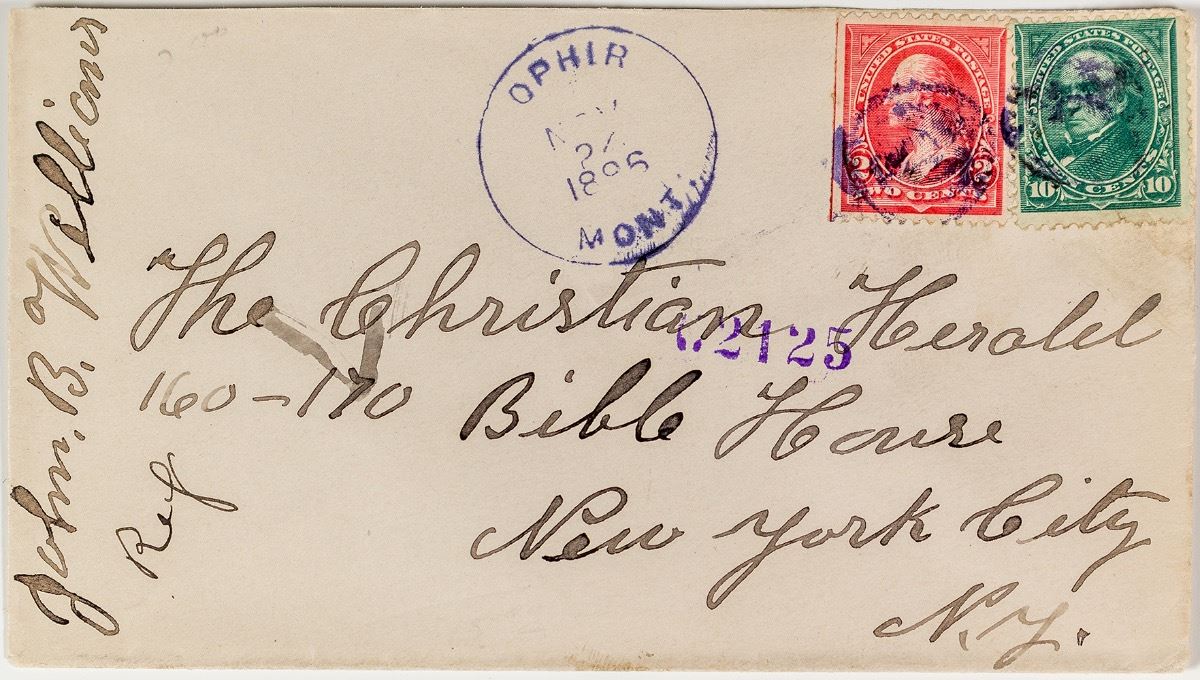 OPHIR
NOV
1895
MONT.
UNITED STATES POSTAGE
2 2
TWO CENTS
UNITED STATES POSTAGE
10 10
TEN CENTS
John. B. Williams
The Christian Herald
2125
160-170 Bible House
Reg
New York City
N.Y.